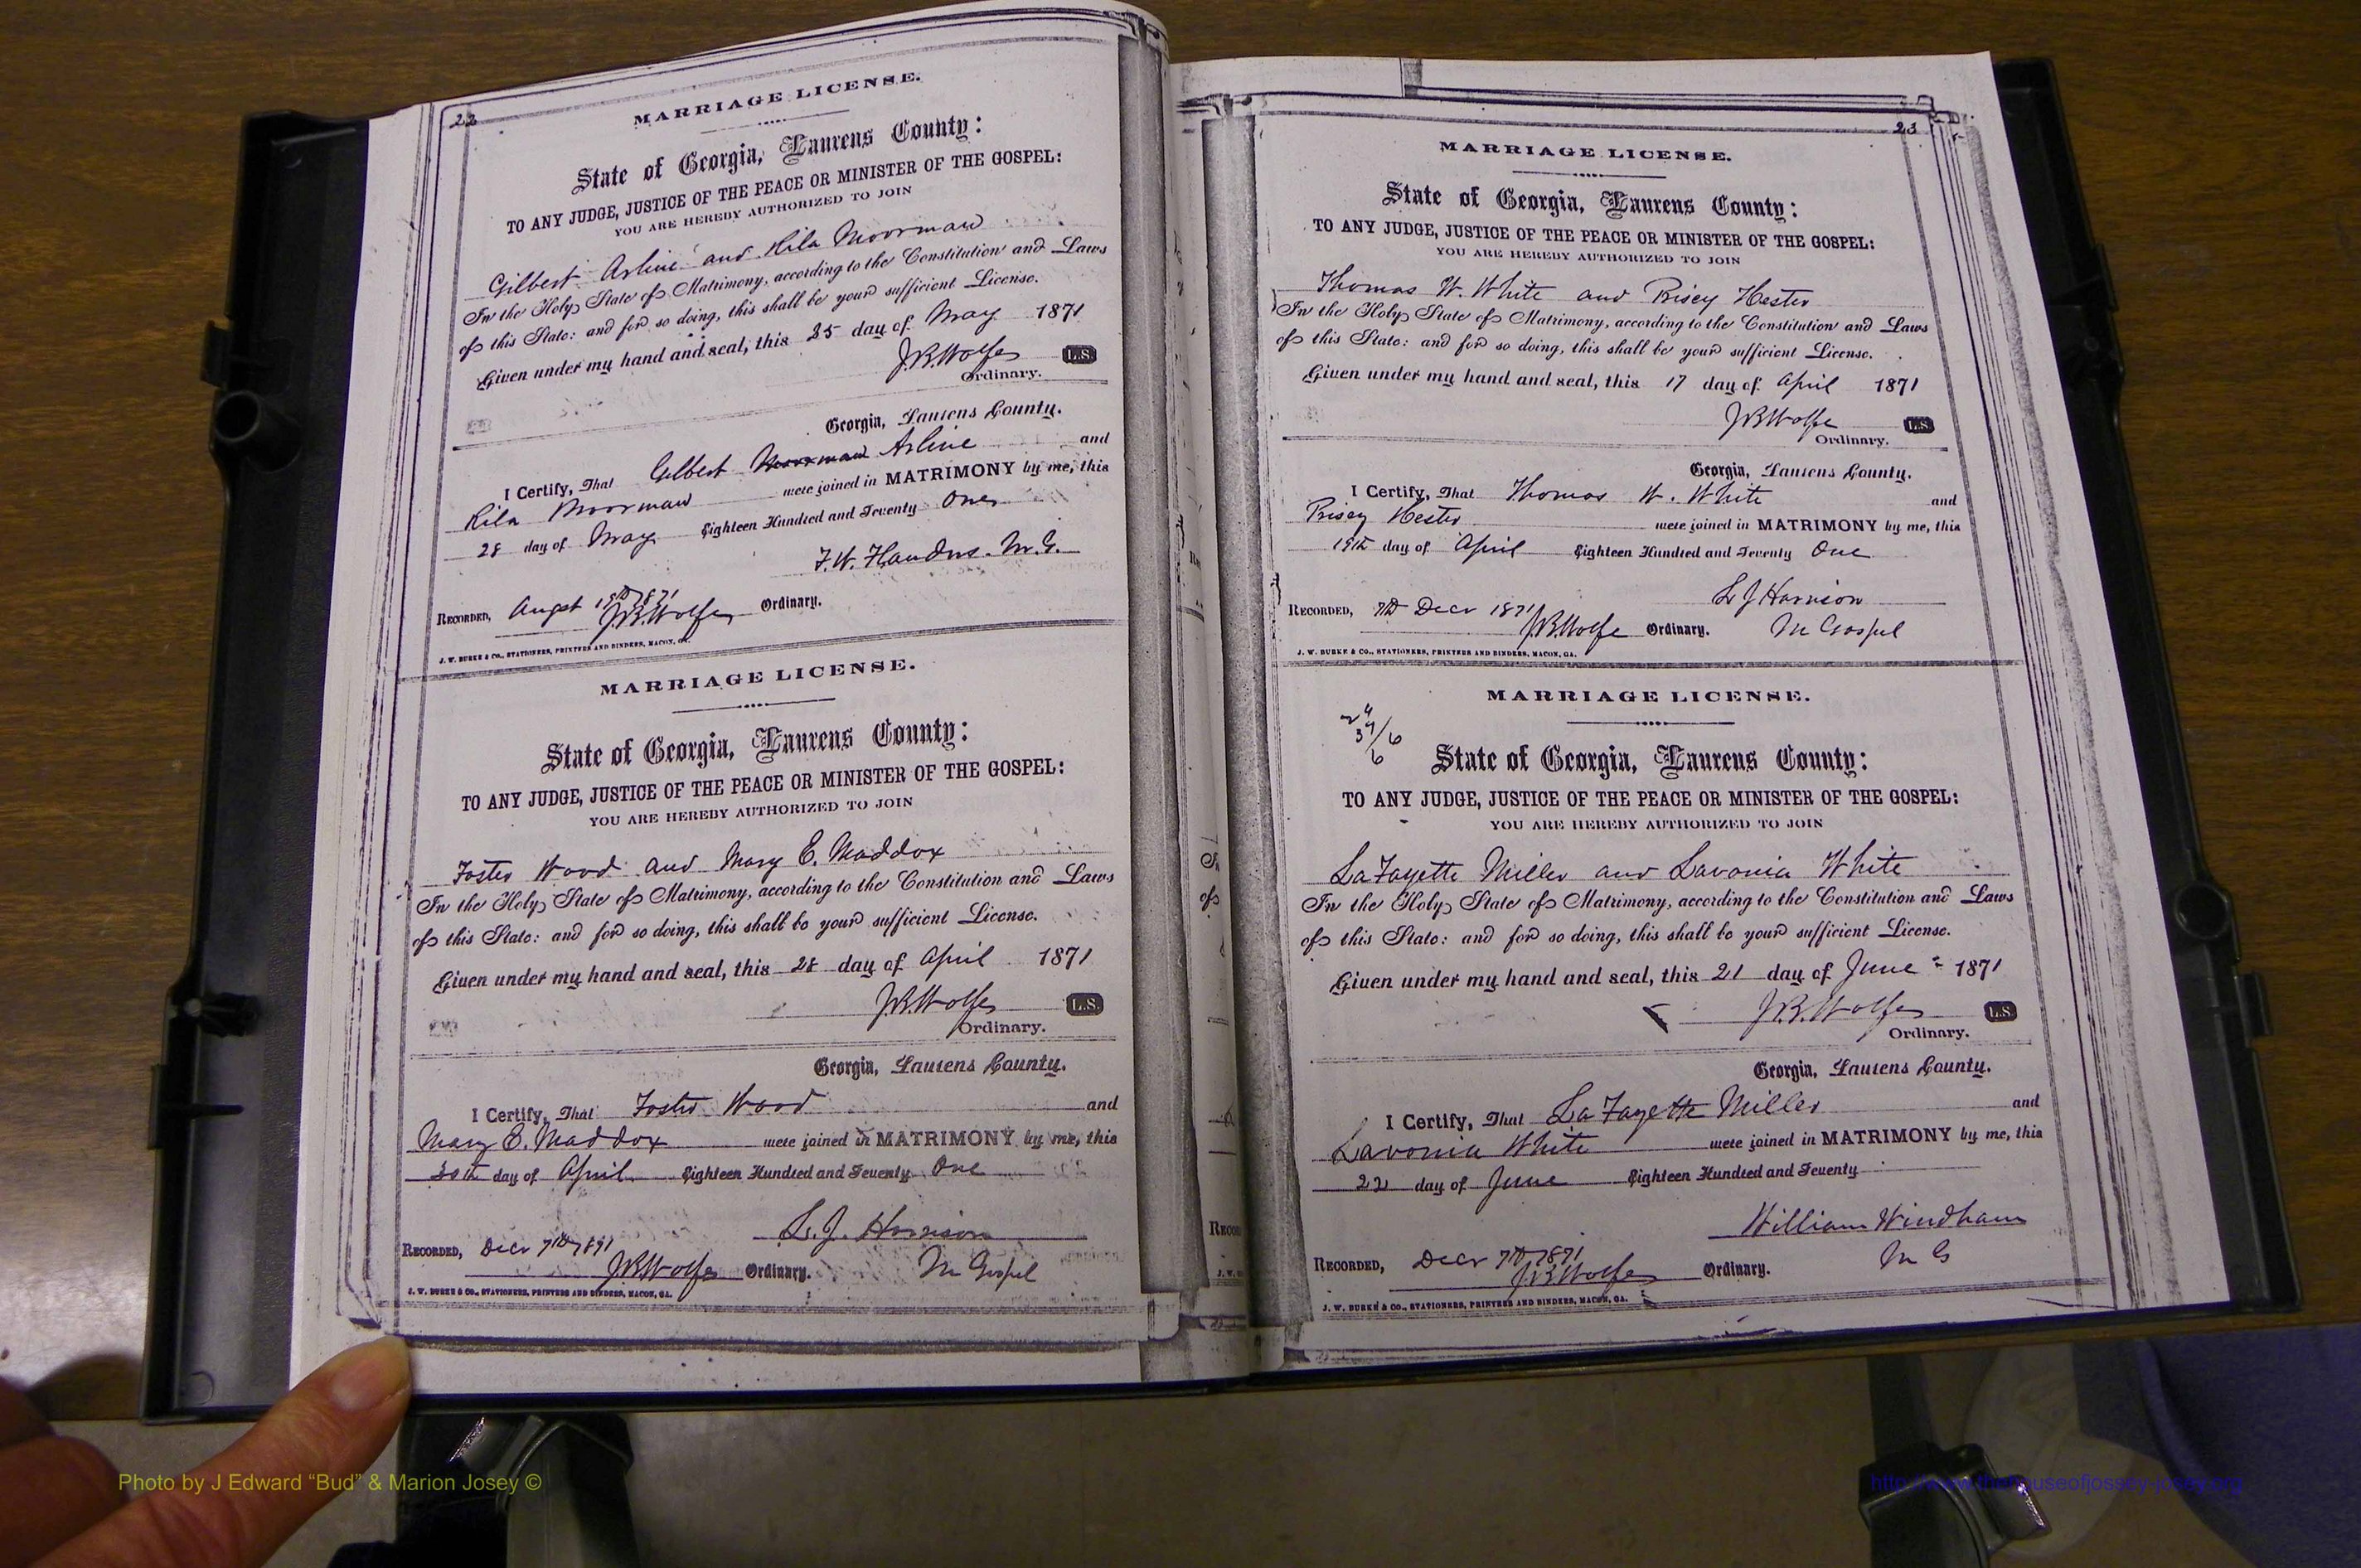 22
MARRIAGE LICENSE.
State of Georgia, Laurens County:
TO ANY JUDGE, JUSTICE OF THE PEACE OR MINISTER OF THE GOSPEL:
YOU ARE HEREBY AUTHORIZED TO JOIN
Gilbert Arline and Rila Moorman
In the Holy State of Matrimony, according to the Constitution and Laws
of this State: and for so doing, this shall be your sufficient License.
Given under my hand and seal, this 25 day of May 1871
J.B. Wolfe L.S.
Ordinary.
Georgia, Laurens County.
I Certify, That Gilbert Moorman Arline and
Rila Moorman were joined in MATRIMONY by me, this
28 day of May Eighteen Hundred and Seventy One
F.W. Flanders. M.G.
RECORDED, Augst 1871
J.B. Wolfe Ordinary.
J. W. BURKE & CO., STATIONERS, PRINTERS AND BINDERS, MACON, GA.
MARRIAGE LICENSE.
State of Georgia, Laurens County:
TO ANY JUDGE, JUSTICE OF THE PEACE OR MINISTER OF THE GOSPEL:
YOU ARE HEREBY AUTHORIZED TO JOIN
Foster Wood and Mary E. Maddox
In the Holy State of Matrimony, according to the Constitution and Laws
of this State: and for so doing, this shall be your sufficient License.
Given under my hand and seal, this 28 day of April 1871
J.B. Wolfe L.S.
Ordinary.
Georgia, Laurens County.
I Certify, That Foster Wood and
Mary E. Maddox were joined in MATRIMONY by me, this
30th day of April Eighteen Hundred and Seventy One
L. J. Harrison
RECORDED, Decr 7th 1871
J.B. Wolfe Ordinary. M Gospel
J. W. BURKE & CO., STATIONERS, PRINTERS AND BINDERS, MACON, GA.
23
MARRIAGE LICENSE.
State of Georgia, Laurens County:
TO ANY JUDGE, JUSTICE OF THE PEACE OR MINISTER OF THE GOSPEL:
YOU ARE HEREBY AUTHORIZED TO JOIN
Thomas W. White and Pricy Hester
In the Holy State of Matrimony, according to the Constitution and Laws
of this State: and for so doing, this shall be your sufficient License.
Given under my hand and seal, this 17 day of April 1871
J B Wolfe L.S.
Ordinary.
Georgia, Laurens County.
I Certify, That Thomas W. White and
Pricy Hester were joined in MATRIMONY by me, this
19th day of April Eighteen Hundred and Seventy One
L J Harrison
RECORDED, 7th Decr 1871
J B Wolfe Ordinary. M Gospel
J. W. BURKE & CO., STATIONERS, PRINTERS AND BINDERS, MACON, GA.
MARRIAGE LICENSE.
State of Georgia, Laurens County:
TO ANY JUDGE, JUSTICE OF THE PEACE OR MINISTER OF THE GOSPEL:
YOU ARE HEREBY AUTHORIZED TO JOIN
LaFayette Miller and Lavonia White
In the Holy State of Matrimony, according to the Constitution and Laws
of this State: and for so doing, this shall be your sufficient License.
Given under my hand and seal, this 21 day of June 1871
J.B. Wolfe L.S.
Ordinary.
Georgia, Laurens County.
I Certify, That LaFayette Miller and
Lavonia White were joined in MATRIMONY by me, this
22 day of June Eighteen Hundred and Seventy
William Windham
RECORDED, Decr 7th 1871 M G
J.B. Wolfe Ordinary.
J. W. BURKE & CO., STATIONERS, PRINTERS AND BINDERS, MACON, GA.
Photo by J Edward “Bud” & Marion Josey ©
http://www.thehouseofjossey-josey.org